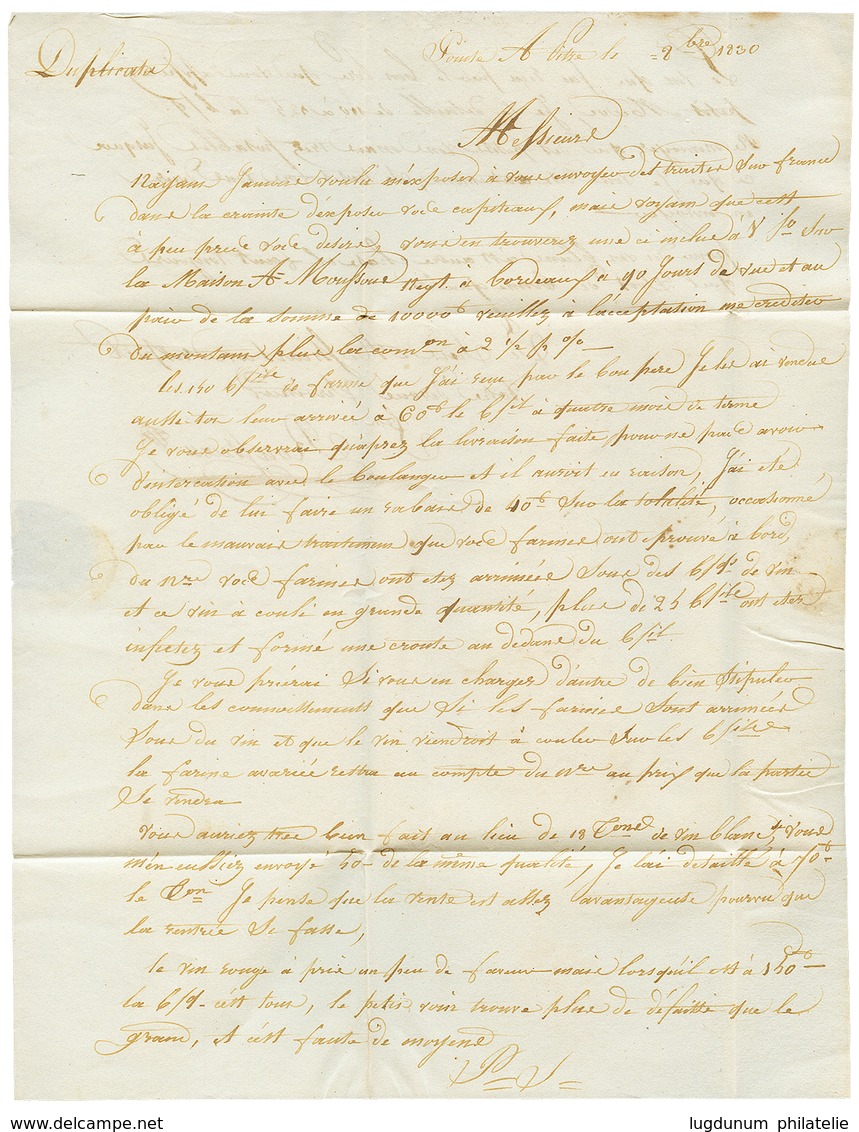 Duplicata
Pointe A Pitre le 8bre 1830
Messieurs
N'ayant Jamais voulu m'exposer à vous envoyer des traites Sur france
dans la crainte d'exposer vos capiteaux, mais voyant que c'est
à peu près vos désirs, vous en trouverez une ci incluse Sur
la Maison A. Moussous Negt. à Bordeaux à 90 Jours de vue et au
pair de la Somme de 10000 veuillez à l'acceptation me créditer
du montant plus la comon à 2 1/2 p %
les 150 de farine que J'ai reçu par le bon pere Je les ai vendue
aussitot leur arrivée à 60 le à quatre mois de terme
Je vous observerai qu'aprez la livraison faite pour ne pas avoir
avec le boulanger et il auroit eu raison, J'ai eté
obligé de lui faire un rabais de 40 Sur la totalité, occasionné
par le mauvais traitement que vos farines ont éprouvé à bord,
du Nre vos farines ont etez arrimées Sous des de vin
et ce vin à coulé en grande quantité, plus de 25 ont etez
infectez et formé une croute au dedans du
Je vous prierai Si vous en chargez d'autre de bien Stipuler
dans les connoissements que Si les farines Sont arrimées
Sous du vin et que le vin viendroit à couler Sur les
la farine avariée restra au compte du Nre au prix que la partie
Se vendra
vous auriez tres bien fait au lieu de 18 Tons de vin blanc vous
m'en eussiez envoyé 50 de la même qualité, Je l'ai detaillé à 70
le Ton Je pense que la vente est assez avantageuse pourvu que
la rentrée Se fasse,
le vin rouge à pris un peu de faveur mais lorsqu'il est à 150
la c'est tout, le petit vin trouve plus de défaitte que le
grand, et c'est faute de moyens
P S
lugdunum philatelie